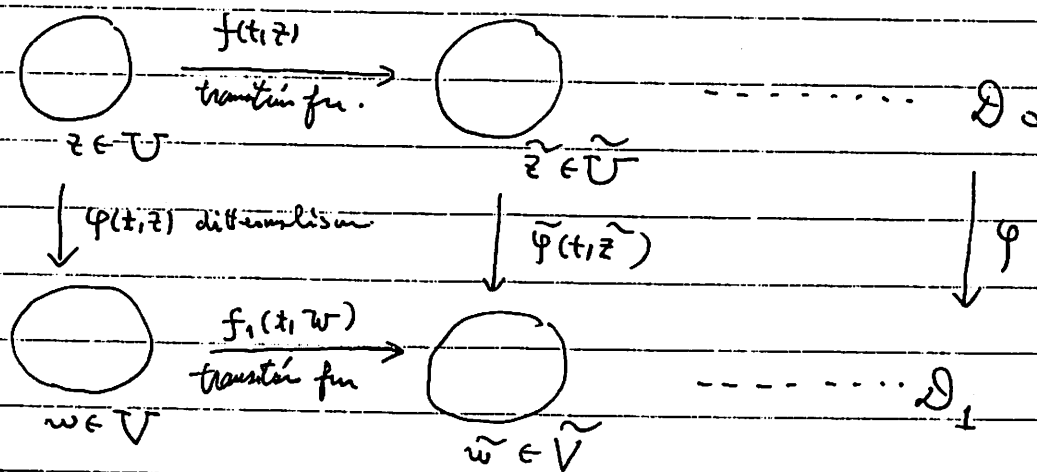 f(t,z)
transition fn.
z ∈ U
z̃ ∈ Ũ
𝒟₀
φ(t,z) diffeomorphism
φ̃(t,z̃)
φ
f₁(t,w)
transition fn
w ∈ V
w̃ ∈ Ṽ
𝒟₁